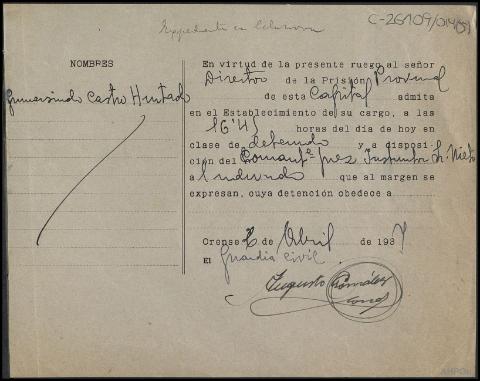 Expediente en Celanova
C-26109/014(51)
NOMBRES
Gumersindo Castro Hurtado
En virtud de la presente ruego al señor
Director de la Prisión Provincial
de esta Capital admita
en el Establecimiento de su cargo, a las
16'45 horas del día de hoy en
clase de detenido y a disposi-
ción del Comante Juez Instructor Sr. Nieto
a l individuo que al margen se
expresan, cuya detención obedece a
Orense 2 de Abril de 1937
El Guardia Civil
Augusto González
AHPOu